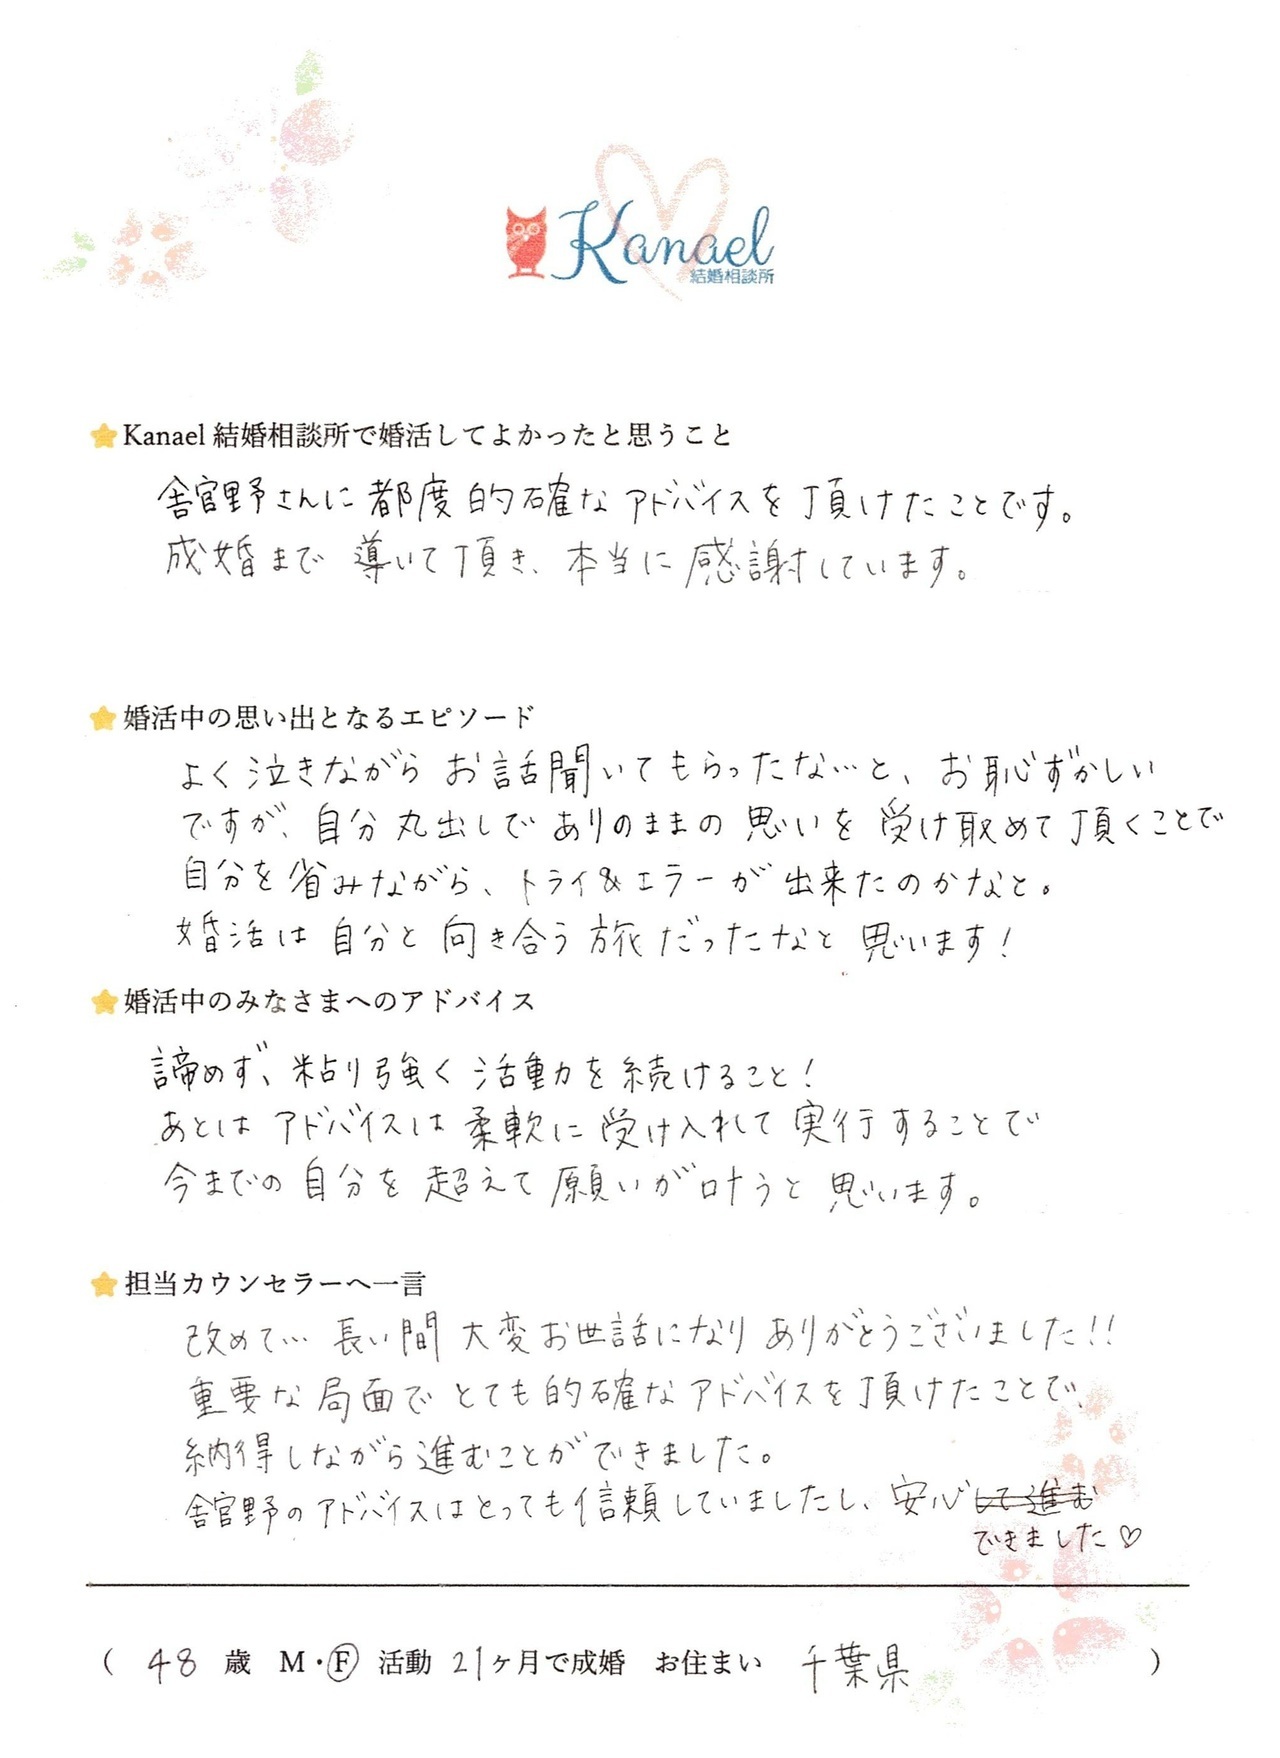 Kanael
結婚相談所
Kanael 結婚相談所で婚活してよかったと思うこと
舎官野さんに都度的確なアドバイスを頂けたことです。
成婚まで導いて頂き、本当に感謝しています。
婚活中の思い出となるエピソード
よく泣きながらお話聞いてもらったな…と、お恥ずかしい
ですが、自分丸出しでありのままの思いを受け取めて頂くことで
自分を省みながら、トライ&エラーが出来たのかなと。
婚活は自分と向き合う旅だったなと思います!
婚活中のみなさまへのアドバイス
諦めず、粘り強く活動を続けること!
あとはアドバイスは柔軟に受け入れして実行することで
今までの自分を超えて願いが叶うと思います。
担当カウンセラーへ一言
改めて… 長い間大変お世話になりありがとうございました!!
重要な局面でとても的確なアドバイスを頂けたことで、
納得しながら進むことができました。
舎官野のアドバイスはとっても信頼していましたし、安心して進む
できました♡
( 48 歳 M・F 活動 21ヶ月で成婚 お住まい 千葉県 )